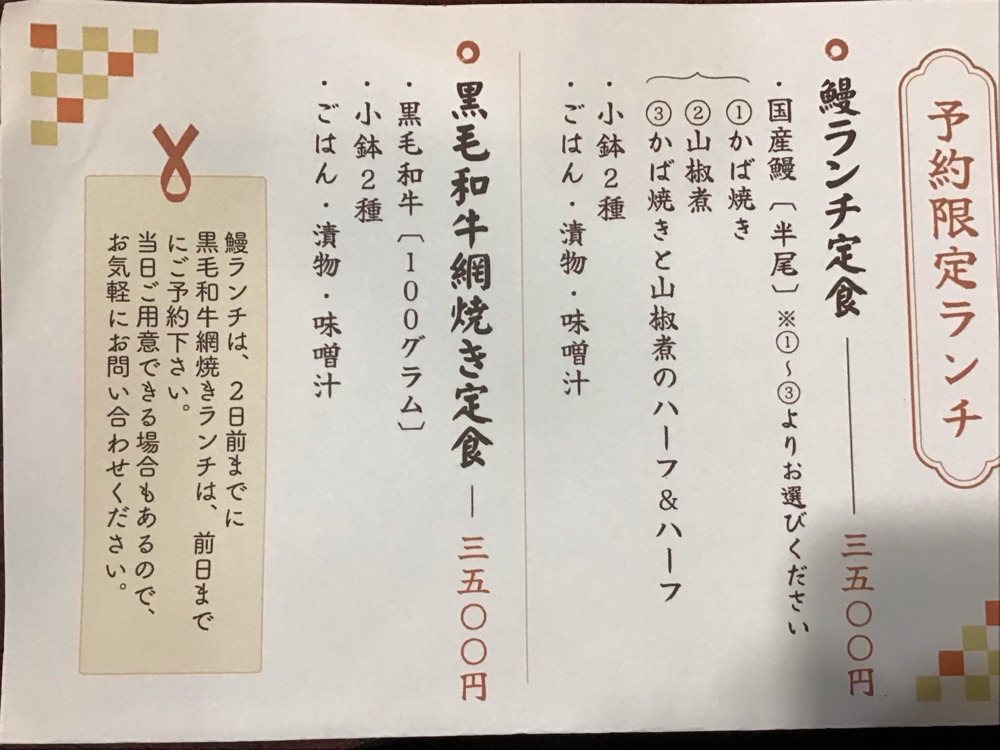 予約限定ランチ
鰻ランチ定食 ― 三五〇〇円
・国産鰻〔半尾〕※①～③よりお選びください
①かば焼き
②山椒煮
③かば焼きと山椒煮のハーフ&ハーフ
・小鉢2種
・ごはん・漬物・味噌汁
黒毛和牛網焼き定食 ― 三五〇〇円
・黒毛和牛〔100グラム〕
・小鉢2種
・ごはん・漬物・味噌汁
鰻ランチは、2日前までに
黒毛和牛網焼きランチは、前日まで
にご予約下さい。
当日ご用意できる場合もあるので、
お気軽にお問い合わせください。